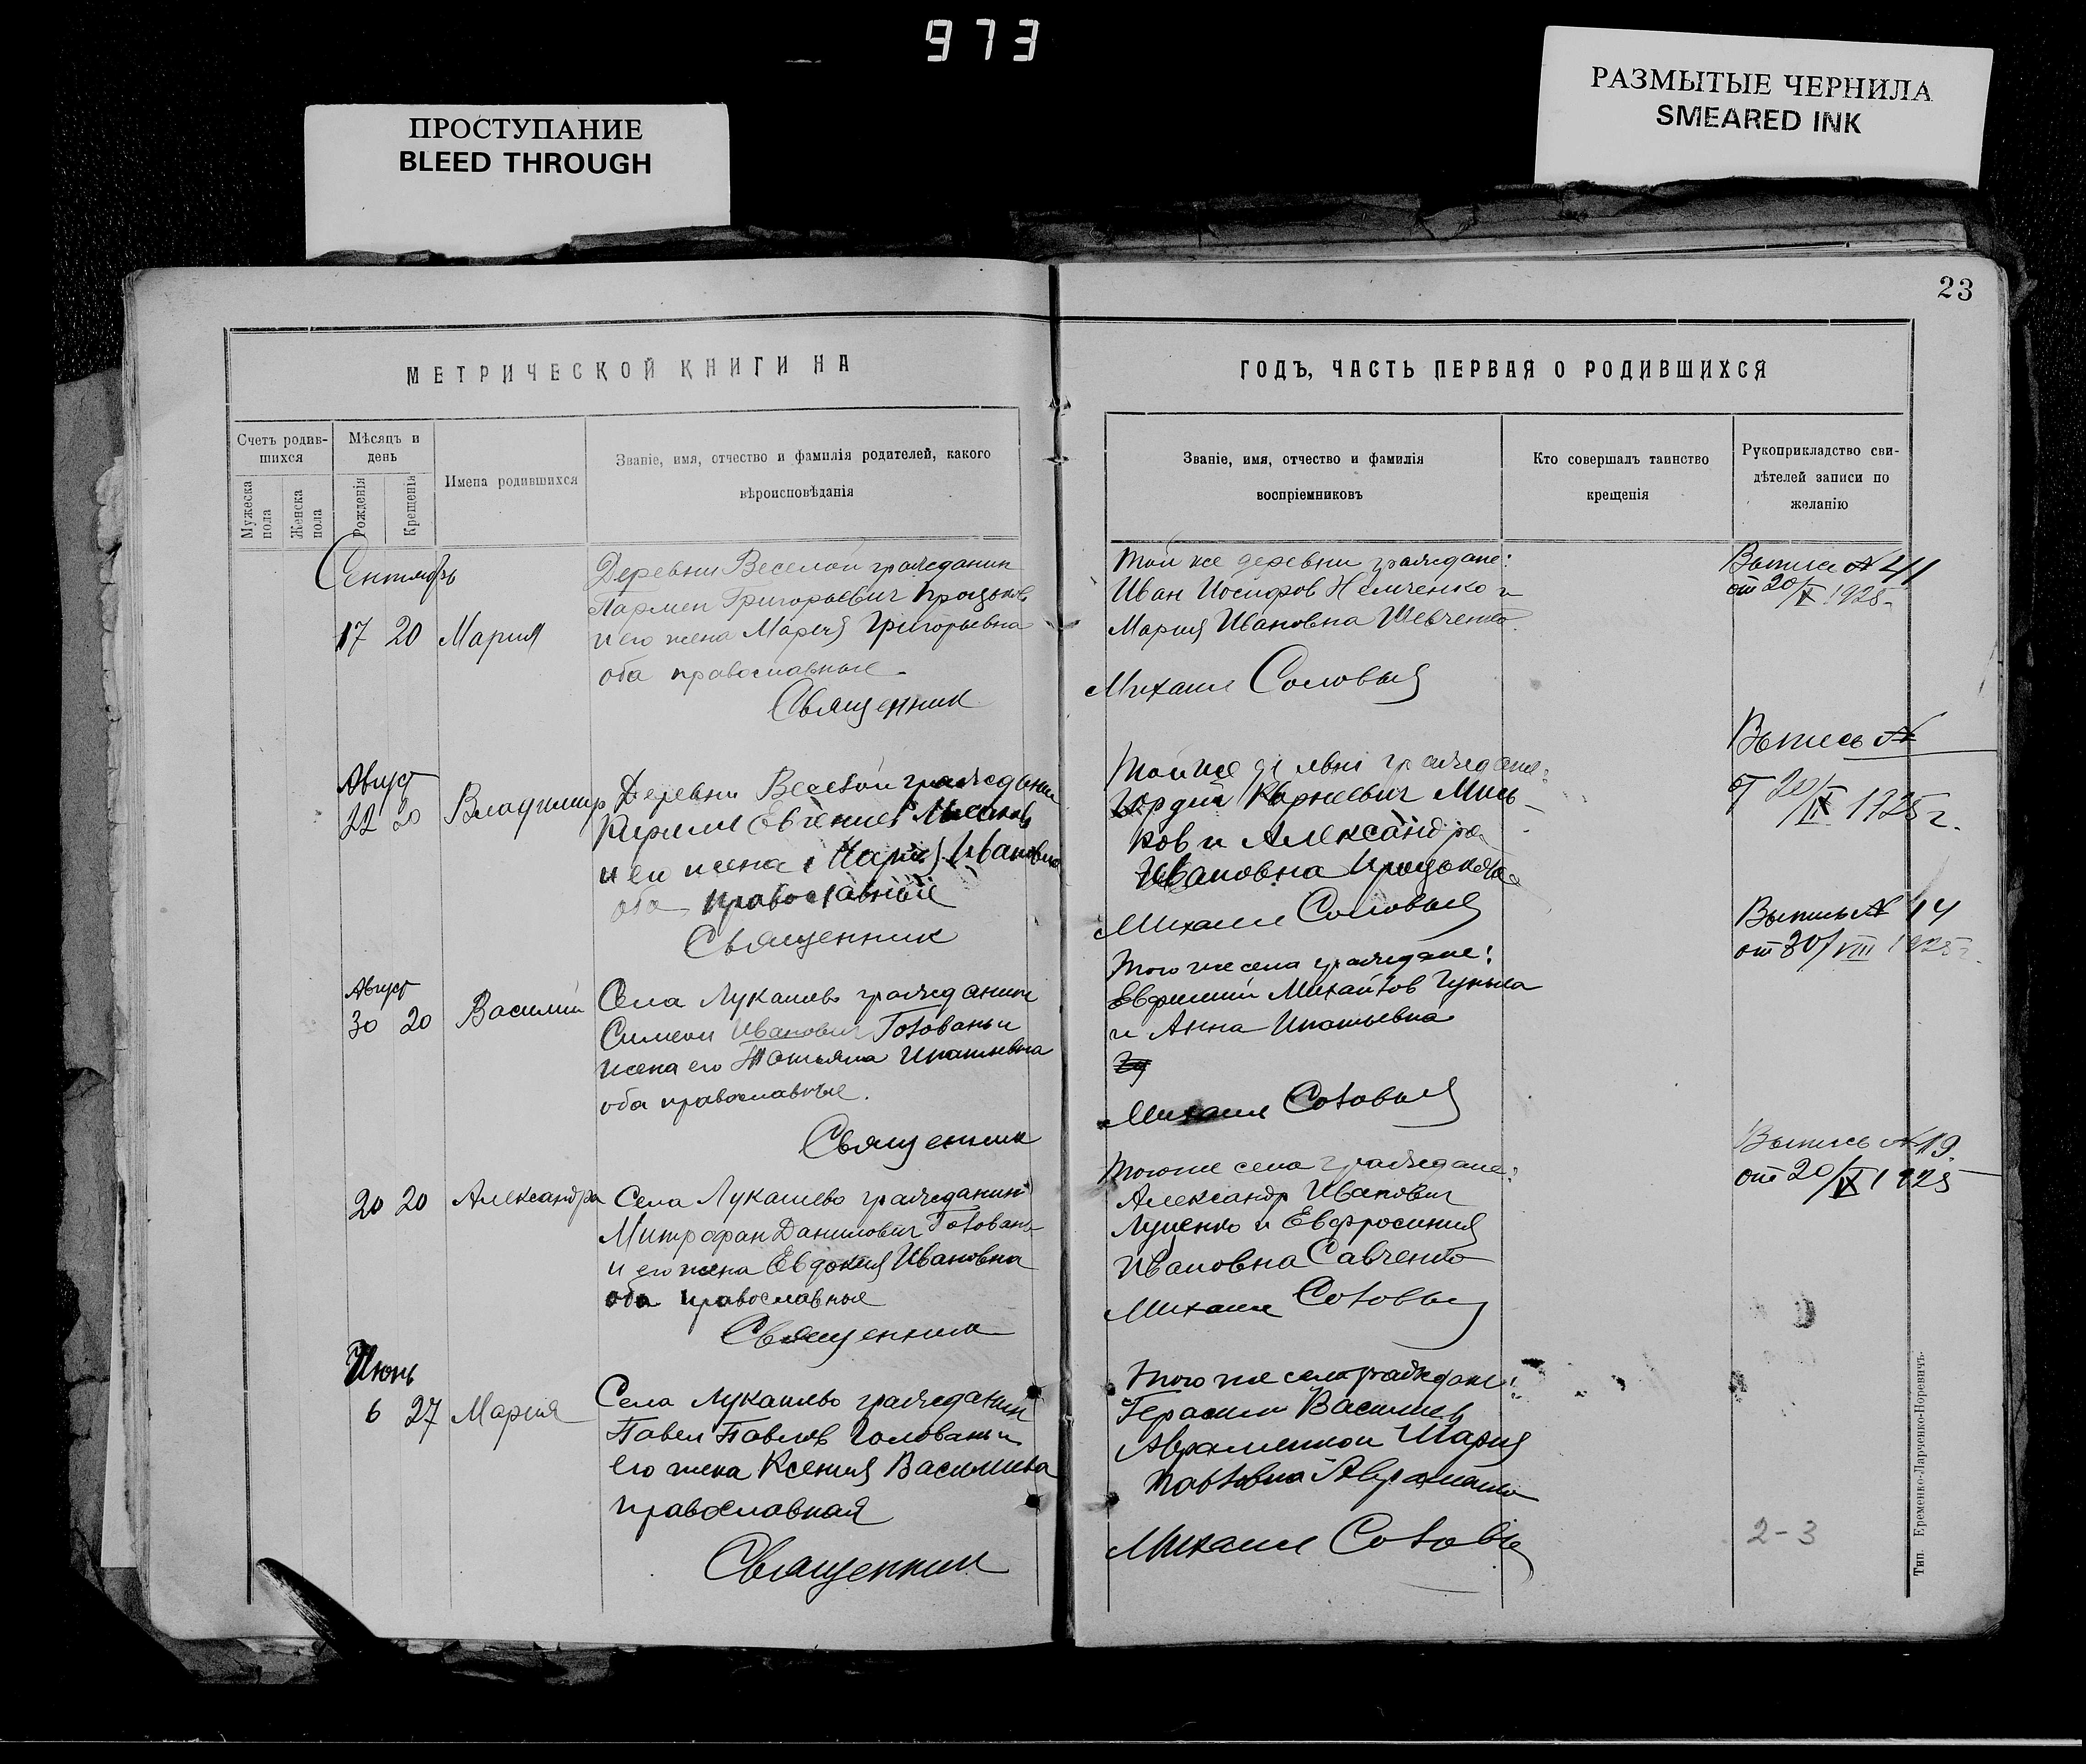 973
ПРОСТУПАНИЕ
BLEED THROUGH
РАЗМЫТЫЕ ЧЕРНИЛА
SMEARED INK
23
МЕТРИЧЕСКОЙ КНИГИ НА
ГОДЪ, ЧАСТЬ ПЕРВАЯ О РОДИВШИХСЯ
Счетъ родив-
шихся
Мужеска
пола
Женска
пола
Мѣсяцъ и
день
Рожденія
Крещенія
Имена родившихся
Званіе, имя, отчество и фамилія родителей, какого
вѣроисповѣданія
Званіе, имя, отчество и фамилія
воспріемниковъ
Кто совершалъ таинство
крещенія
Рукоприкладство сви-
дѣтелей записи по
желанію
Сентябрь
17 20 Мария
Деревни Веселой гражданин
Пармен Григорьевич
и его жена Мария Григорьевна
оба православные
Священник
Той же деревни граждане:
Иван Иосифов Немченко и
Мария Ивановна Шевченко
Михаил Соловый
Выпись № 411
от 20/X 1925
Август
22 20 Владимир
Деревни Веселой гражданин
Кирилл Евгениев
и его жена Мария Ивановна
оба православные
Священник
Той же деревни граждане:
Гордий Корнеевич Мись-
ков и Александра
Ивановна
Михаил Соловый
Выпись №
20/IX 1925 г.
Август
30 20 Василий
Села Лукашево гражданин
Симеон Иванович Головань и
жена его Татьяна Игнатьевна
оба православные.
Священник
Того же села граждане:
Евфимий Михайлов
и Анна Игнатьевна
Михаил Соловый
Выпись № 14
от 30/VIII 1925 г.
20 20 Александра
Села Лукашево гражданин
Митрофан Данилович Головань
и его жена Евдокия Ивановна
оба православные
Священник
Того же села граждане:
Александр Иванович
Луценко и Евфросиния
Ивановна Савченко
Михаил Соловый
Выпись № 19
от 20/IX 1925
Июнь
6 27 Мария
Села Лукашево гражданин
Павел Павлов Головань и
его жена Ксения Васильева
православная
Священник
Того же села граждане:
Герасим Васильев
Авраменко и Мария
Павловна Авраменко
Михаил Соловый
2-3
Тип. Еременко-Ларченко-Норевичъ.